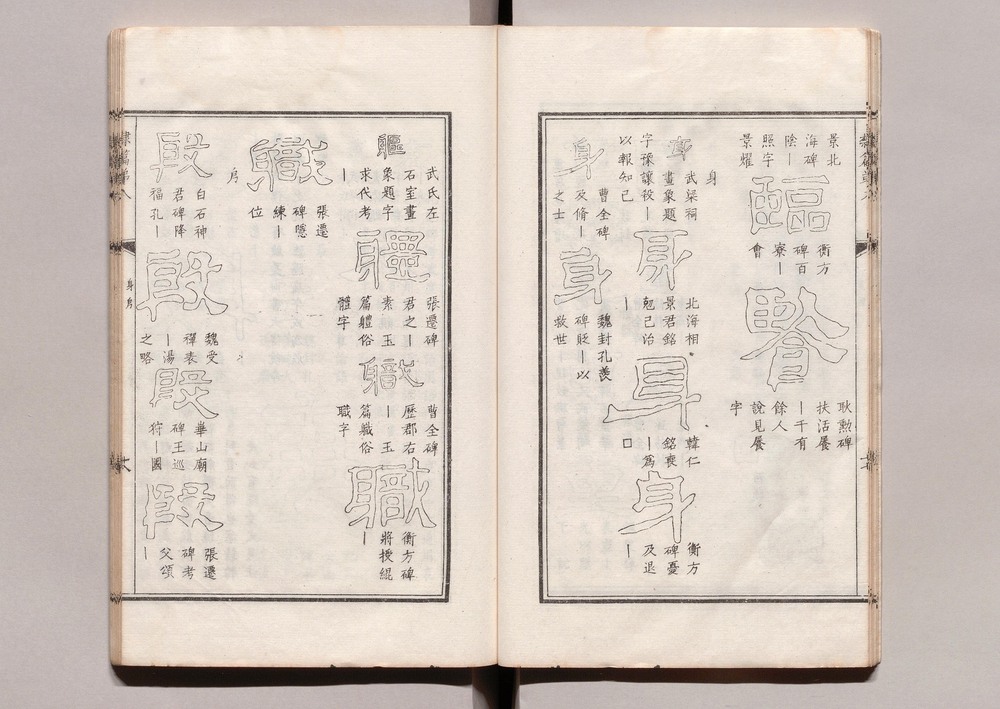 景北
海碑
陰丨
照字
景耀
臨
衡方
碑百
寮丨
會
耿勲碑
扶活餐
丨千有
餘人
說見餐
字
身
身
武梁祠
畫象題
字豫讓殺丨
以報知己
身
北海相
景君銘
剋己治
丨
身
韓仁
銘喪
丨爲
口
身
衡方
碑憂
及退
丨
身
曹全碑
及脩丨
之士
身
魏封孔羨
碑貶丨以
救世
軀
武氏左
石室畫
象題字
求代考
丨
張遷碑
君之丨
素
玉
篇軆俗
體字
職
曹全碑
歷郡右
丨玉
篇軄俗
職字
職
衡方碑
將授緄
丨
職
張遷
碑隱
練丨
位
㐆
白石神
君碑降
福孔丨
魏受
禪表
丨湯
之略
華山廟
碑王巡
狩丨國
張遷
碑考
父頌
丨
身㐆